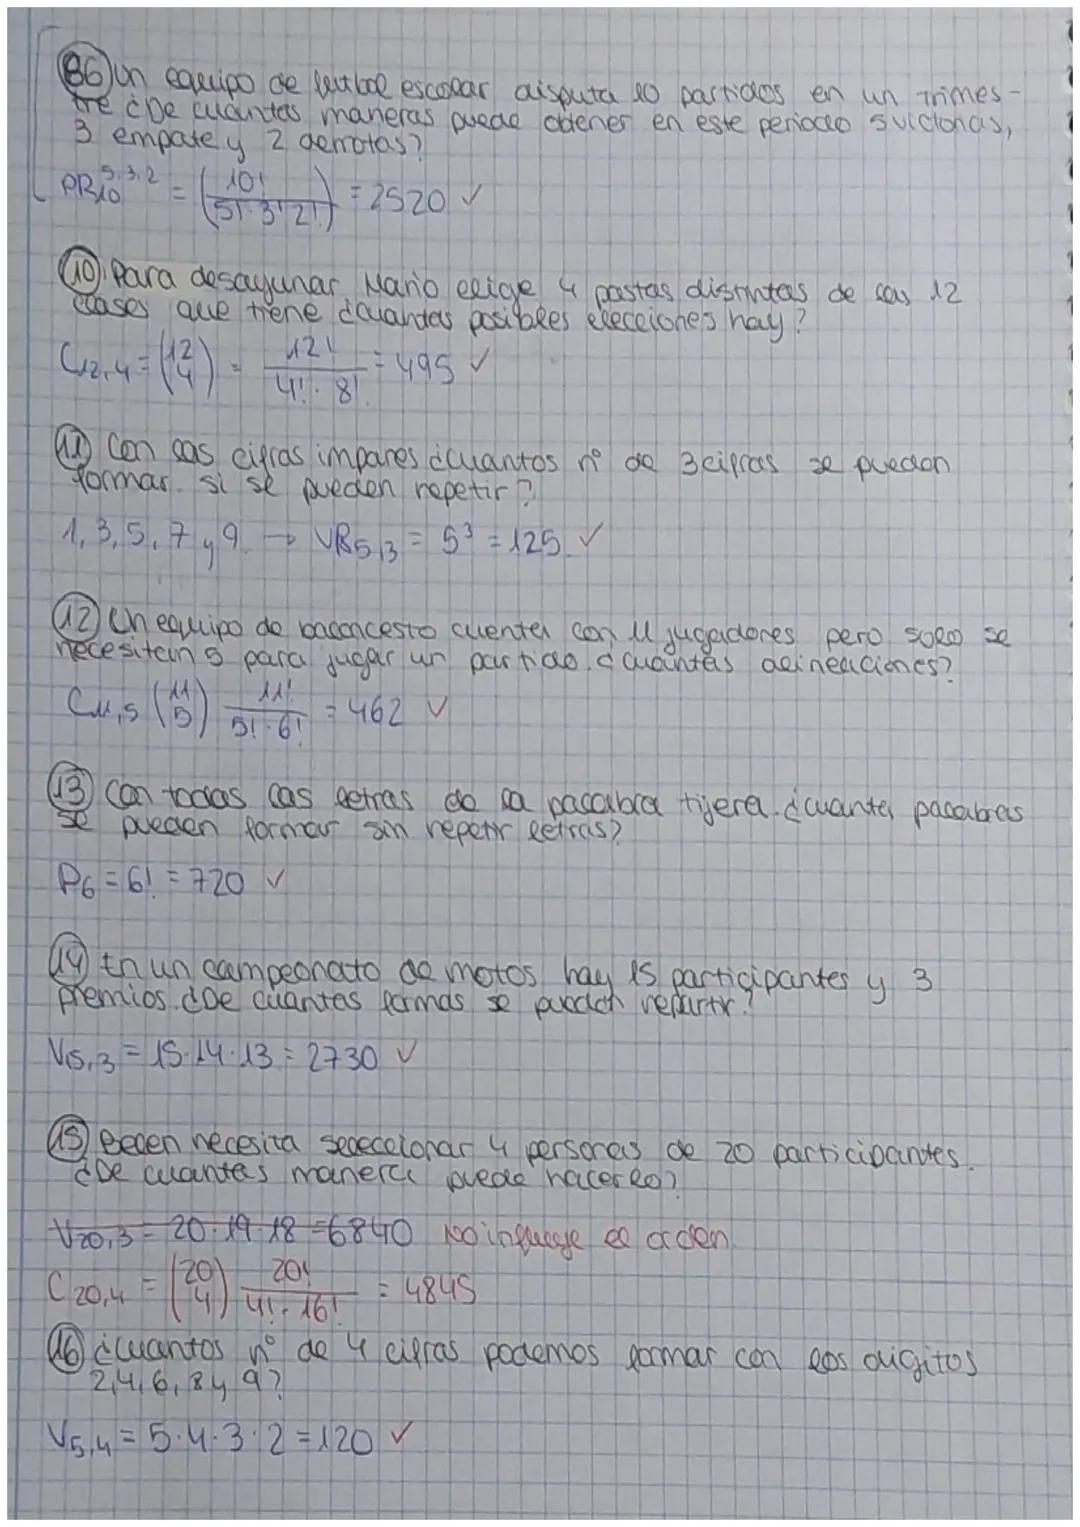 86) Un equipo de futbol escolar disputa 10 partidos en un trimes-
tre ¿De cuantas maneras puede obtener en este periodo 5 victorias,
3 empate y 2 derrotas?
PR₁₀^5,3,2 = (10! / 5!·3!2!) = 2520 ✓
10) Para desayunar Mario elige 4 pastas distintas de las 12
clases que tiene ¿cuantas posibles elecciones hay?
C₁₂,₄ = (12 4) = 12! / 4!·8! = 495 ✓
11) Con las cifras impares ¿cuantos nº de 3 cifras se pueden
formar si se pueden repetir?
1, 3, 5, 7 y 9 → VR₅,₃ = 5³ = 125 ✓
12) Un equipo de baloncesto cuenta con 11 jugadores pero solo se
necesitan 5 para jugar un partido. ¿cuantas alineaciones?
C₁₁,₅ (11 5) 11! / 5!·6! = 462 ✓
13) Con todas las letras de la palabra tijera. ¿cuanta palabras
se pueden formar sin repetir letras?
P₆ = 6! = 720 ✓
14) En un campeonato de motos hay 15 participantes y 3
premios. ¿De cuantas formas se pueden repartir?
V₁₅,₃ = 15·14·13 = 2730 ✓
15) Belen necesita seleccionar 4 personas de 20 participantes.
¿De cuantas manera puede hacerlo?
V₂₀,₃ = 20·19·18 = 6840 No influye el orden
C₂₀,₄ = (20 4) 20! / 4!·16! = 4845
16) ¿Cuantos nº de 4 cifras podemos formar con los digitos
2, 4, 6, 8 y 9?
V₅,₄ = 5·4·3·2 = 120 ✓